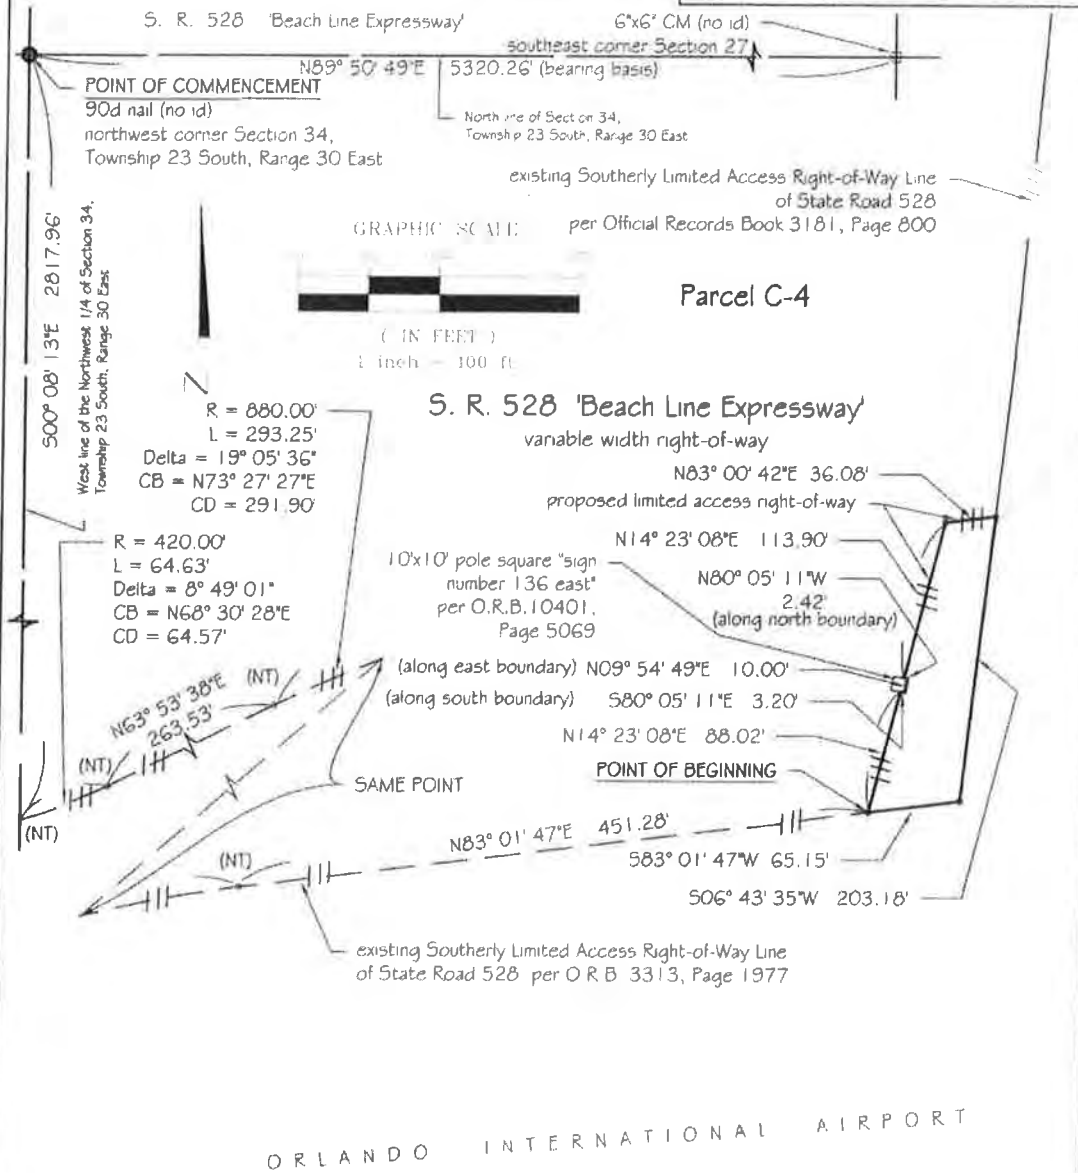 S. R. 528 'Beach Line Expressway'
6"x6" CM (no id)
southeast corner Section 27
N89° 50' 49"E 5320.26' (bearing basis)
POINT OF COMMENCEMENT
90d nail (no id)
northwest corner Section 34,
Township 23 South, Range 30 East
North line of Section 34,
Township 23 South, Range 30 East
existing Southerly Limited Access Right-of-Way Line
of State Road 528
per Official Records Book 3181, Page 800
S00° 08' 13"E 2817.96'
West line of the Northwest 1/4 of Section 34,
Township 23 South, Range 30 East
GRAPHIC SCALE
( IN FEET )
1 inch = 100 ft
Parcel C-4
N
S. R. 528 'Beach Line Expressway'
variable width right-of-way
R = 880.00'
L = 293.25'
Delta = 19° 05' 36"
CB = N73° 27' 27"E
CD = 291.90'
R = 420.00'
L = 64.63'
Delta = 8° 49' 01"
CB = N68° 30' 28"E
CD = 64.57'
N83° 00' 42"E 36.08'
proposed limited access right-of-way
N14° 23' 08"E 113.90'
10'x10' pole square "sign
number 136 east"
per O.R.B.10401,
Page 5069
N80° 05' 11"W
2.42'
(along north boundary)
(along east boundary) N09° 54' 49"E 10.00'
(along south boundary) S80° 05' 11"E 3.20'
N14° 23' 08"E 88.02'
POINT OF BEGINNING
N63° 53' 38"E (NT)
263.53'
(NT)
(NT)
SAME POINT
N83° 01' 47"E 451.28'
(NT)
S83° 01' 47"W 65.15'
S06° 43' 35"W 203.18'
existing Southerly Limited Access Right-of-Way Line
of State Road 528 per O R B 3313, Page 1977
ORLANDO INTERNATIONAL AIRPORT